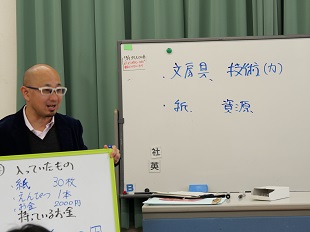 ・文房具、技術(力)
・紙、資源
社
英
入っていたもの
・紙 30枚
・えんぴつ 1本
・お金 2000円
持っているお金